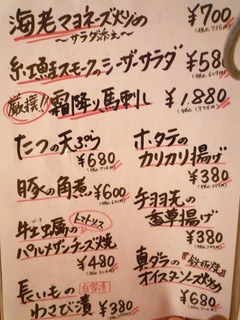 海老マヨネーズ炒めの
～サラダ添え～
¥700
(税込735円)
紅鮭スモークのシーザーサラダ
¥58
厳撰!!
霜降り馬刺し
¥1,880
たつの天ぷら
¥680
ホタテの
カリカリ揚げ
¥380
豚の角煮
¥600
手羽先の
香草揚げ
¥380
牡蠣の
トマトソース
パルメザンチーズ焼
¥480
真ダラの
『鉄板焼』
オイスターソース炒め
¥680
長いもの
自家漬
わさび漬
¥380